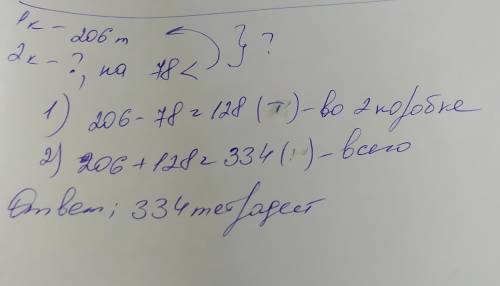 1к – 206т
2к – ?, на 78 < } ?
1) 206 – 78 = 128 (т) – во 2 коробке
2) 206 + 128 = 334 (т) – всего
Ответ; 334 тетрадест